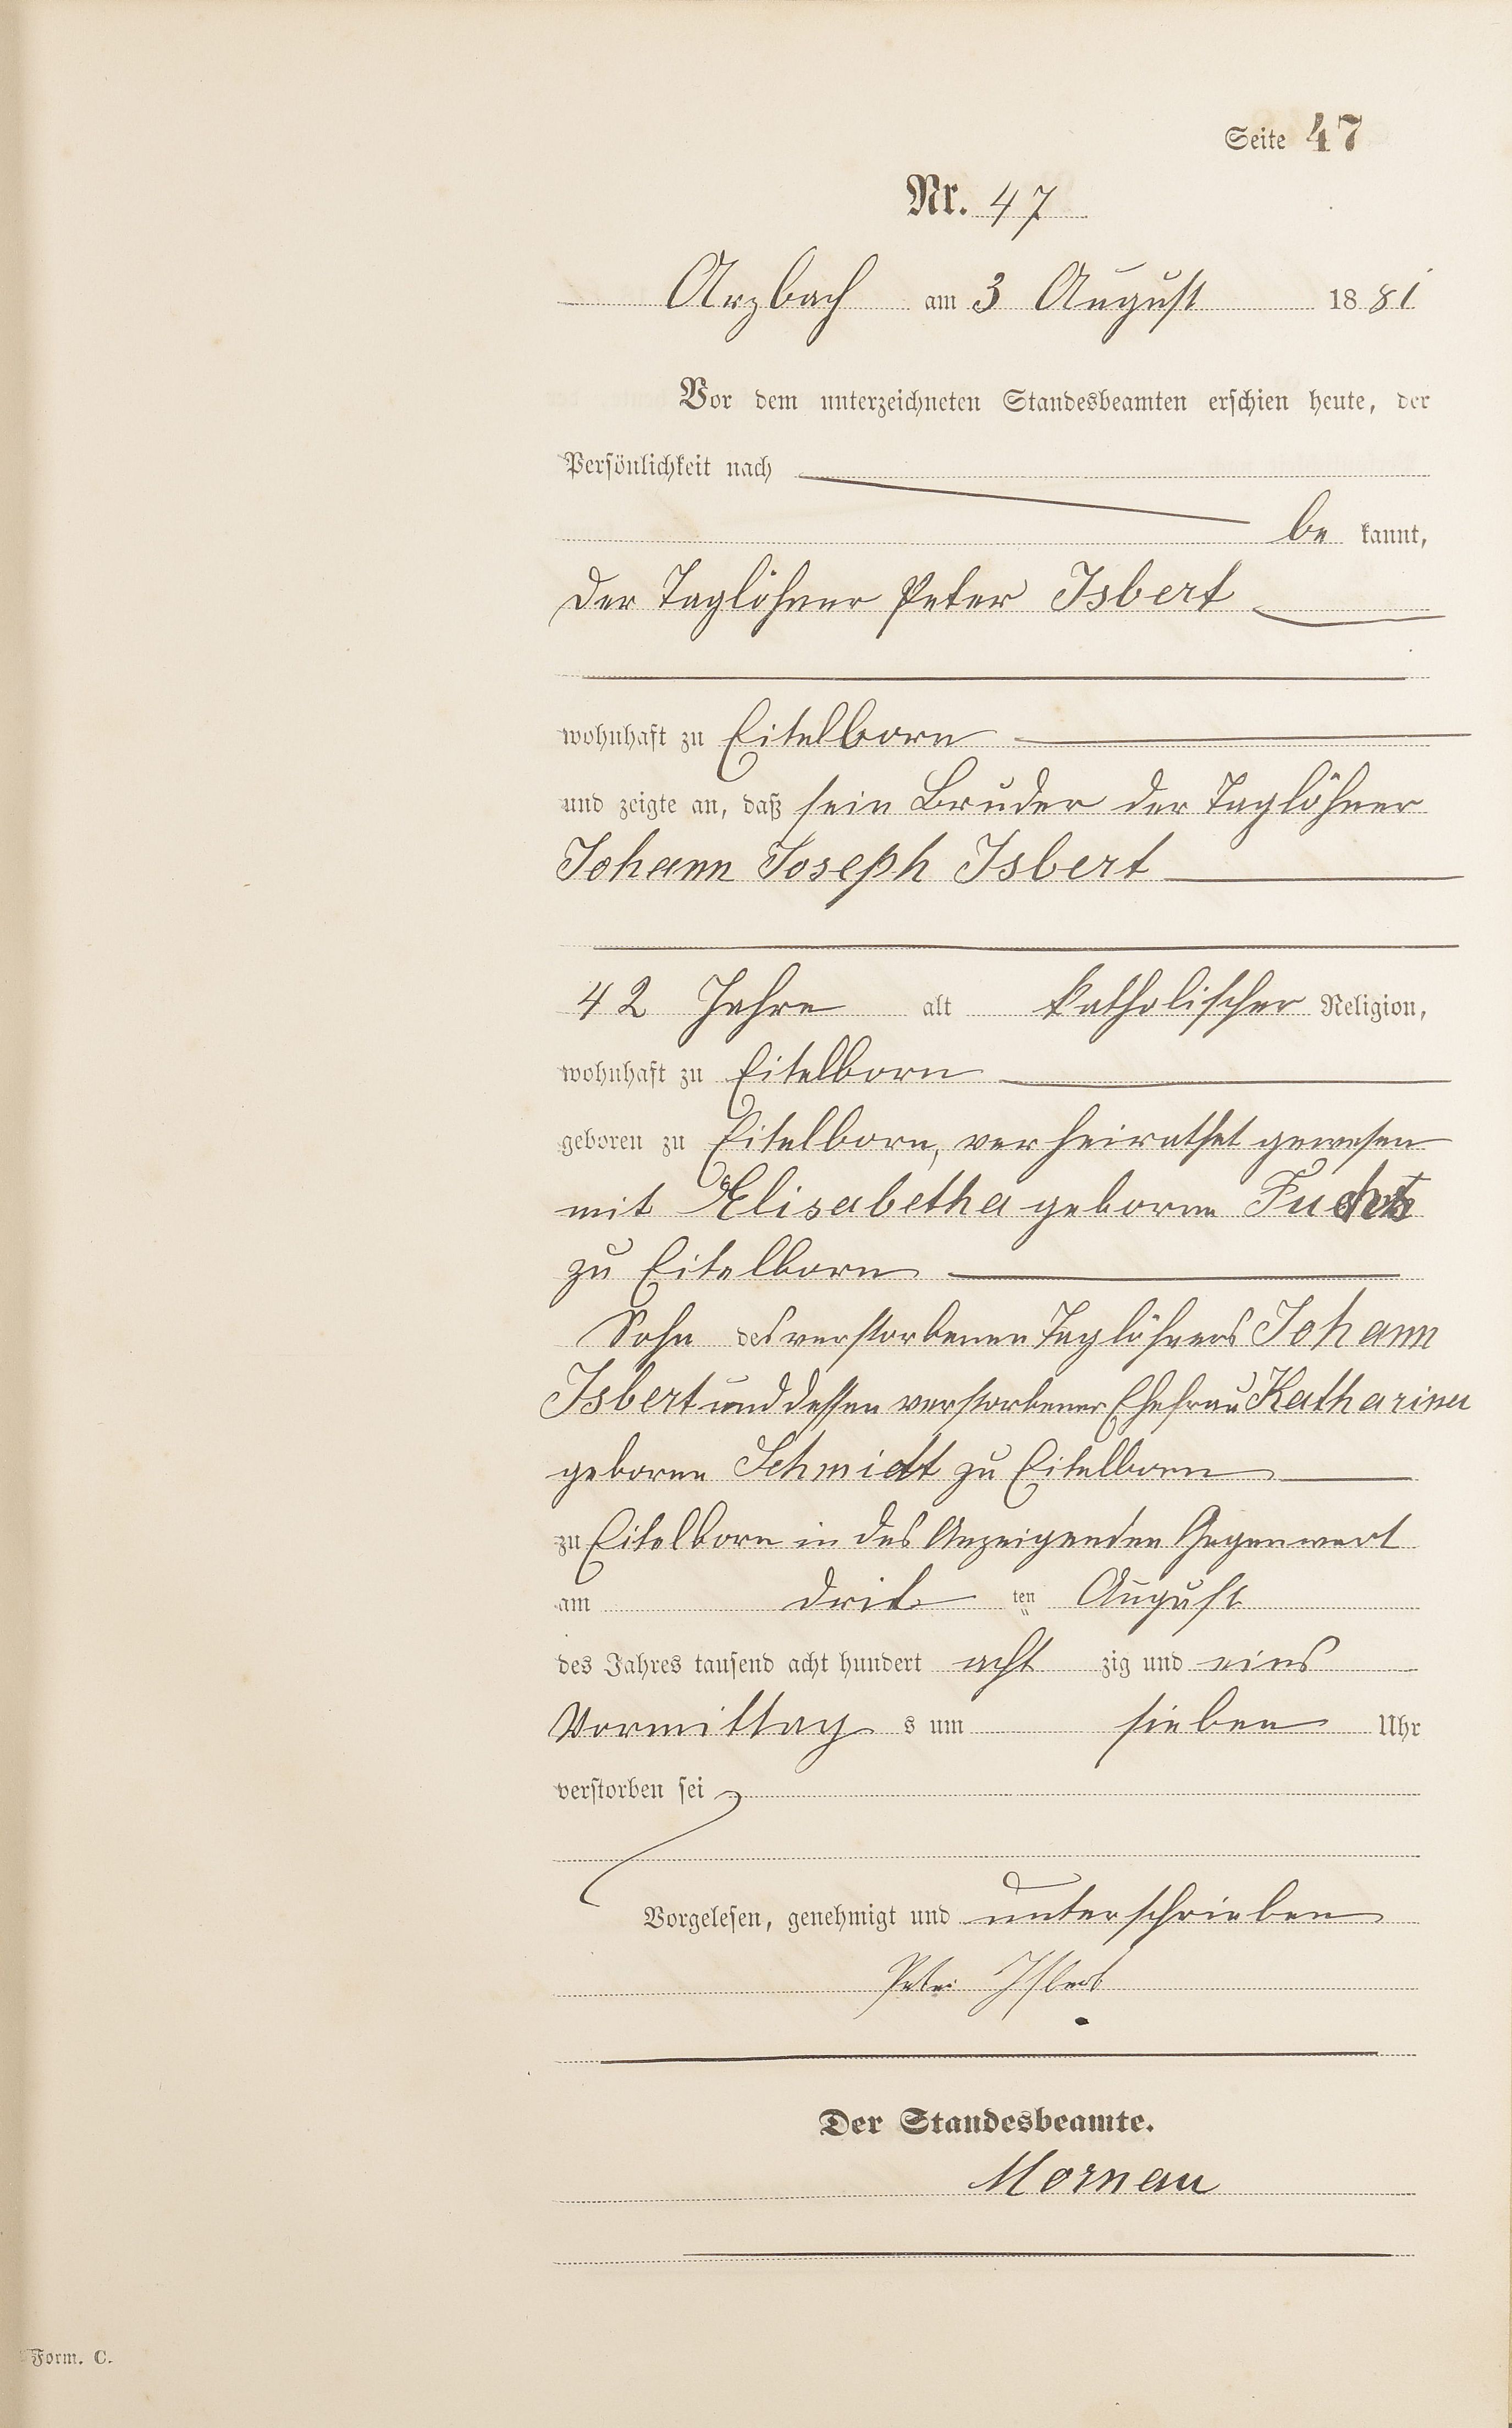 Seite 47
Nr. 47
Arzbach am 3 August 1881
Vor dem unterzeichneten Standesbeamten erschien heute, der
Persönlichkeit nach
be kannt,
der Taglöhner Peter Isbert
wohnhaft zu Eitelborn
und zeigte an, daß sein Bruder der Taglöhner
Johann Joseph Isbert
42 Jahre alt katholischer Religion,
wohnhaft zu Eitelborn
geboren zu Eitelborn, verheirathet gewesen
mit Elisabetha geborne
zu Eitelborn
Sohn des verstorbenen Taglöhners Johann
Isbert und dessen verstorbener Ehefrau Katharina
geborne Schmidt zu Eitelborn
zu Eitelborn in des Anzeigenden Gegenwart
am drit ten August
des Jahres tausend acht hundert acht zig und eins
Vormittag s um sieben Uhr
verstorben sei
Vorgelesen, genehmigt und unterschrieben
Peter Isbert
Der Standesbeamte.
Mornau
Form. C.